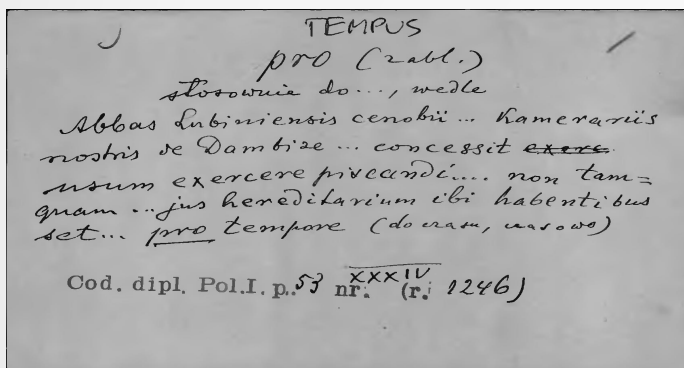 TEMPUS
pro (z abl.)
stosownie do..., wedle
Abbas Lubiniensis cenobii... Kamerariis
nostris de Dambize... concessit exerc.
usum exercere piscandi.... non tam=
quam... jus hereditarium ibi habentibus
set... pro tempore (do czasu, czasowo)
Cod. dipl. Pol. I. p. 53 nr. XXXIV (r. 1246)